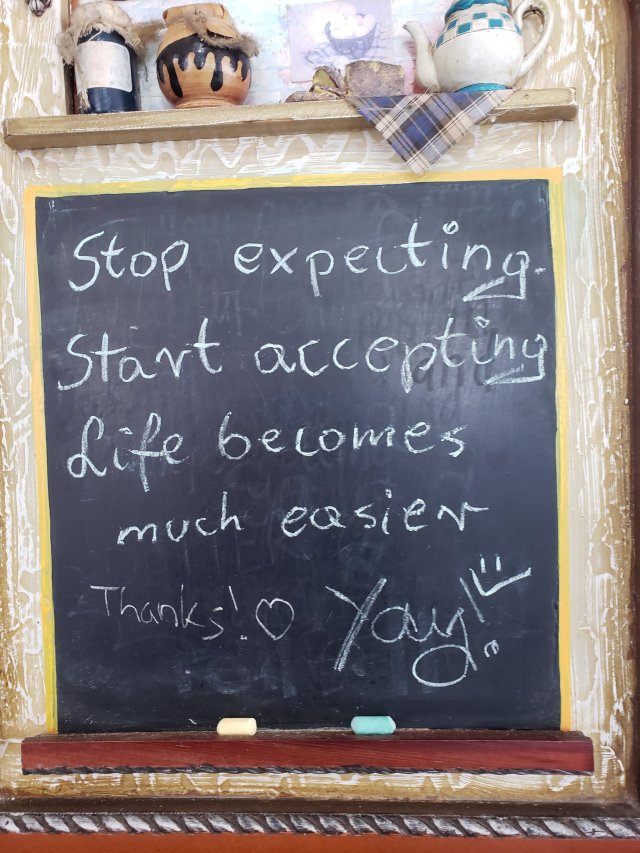 Stop expecting.
Start accepting
Life becomes
much easier
Thanks! ♡ Yay!